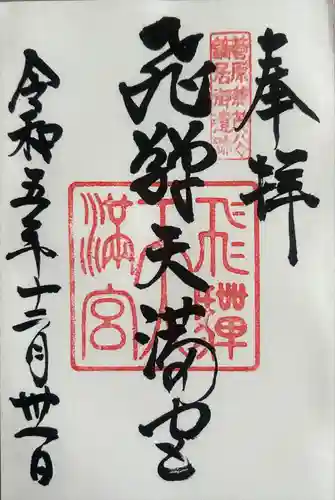 奉拝
飛騨天満宮
令和五年十二月卅一日
飛騨
天
満宮